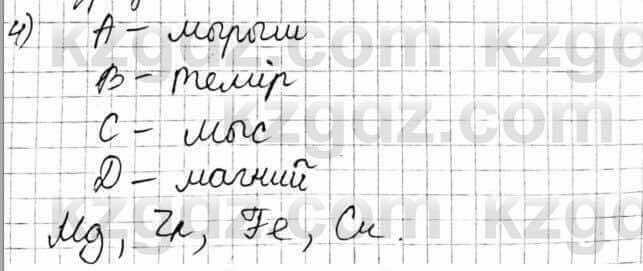 4) A – мырыш
B – темір
C – мыс
D – магний
Mg, Zn, Fe, Cu.